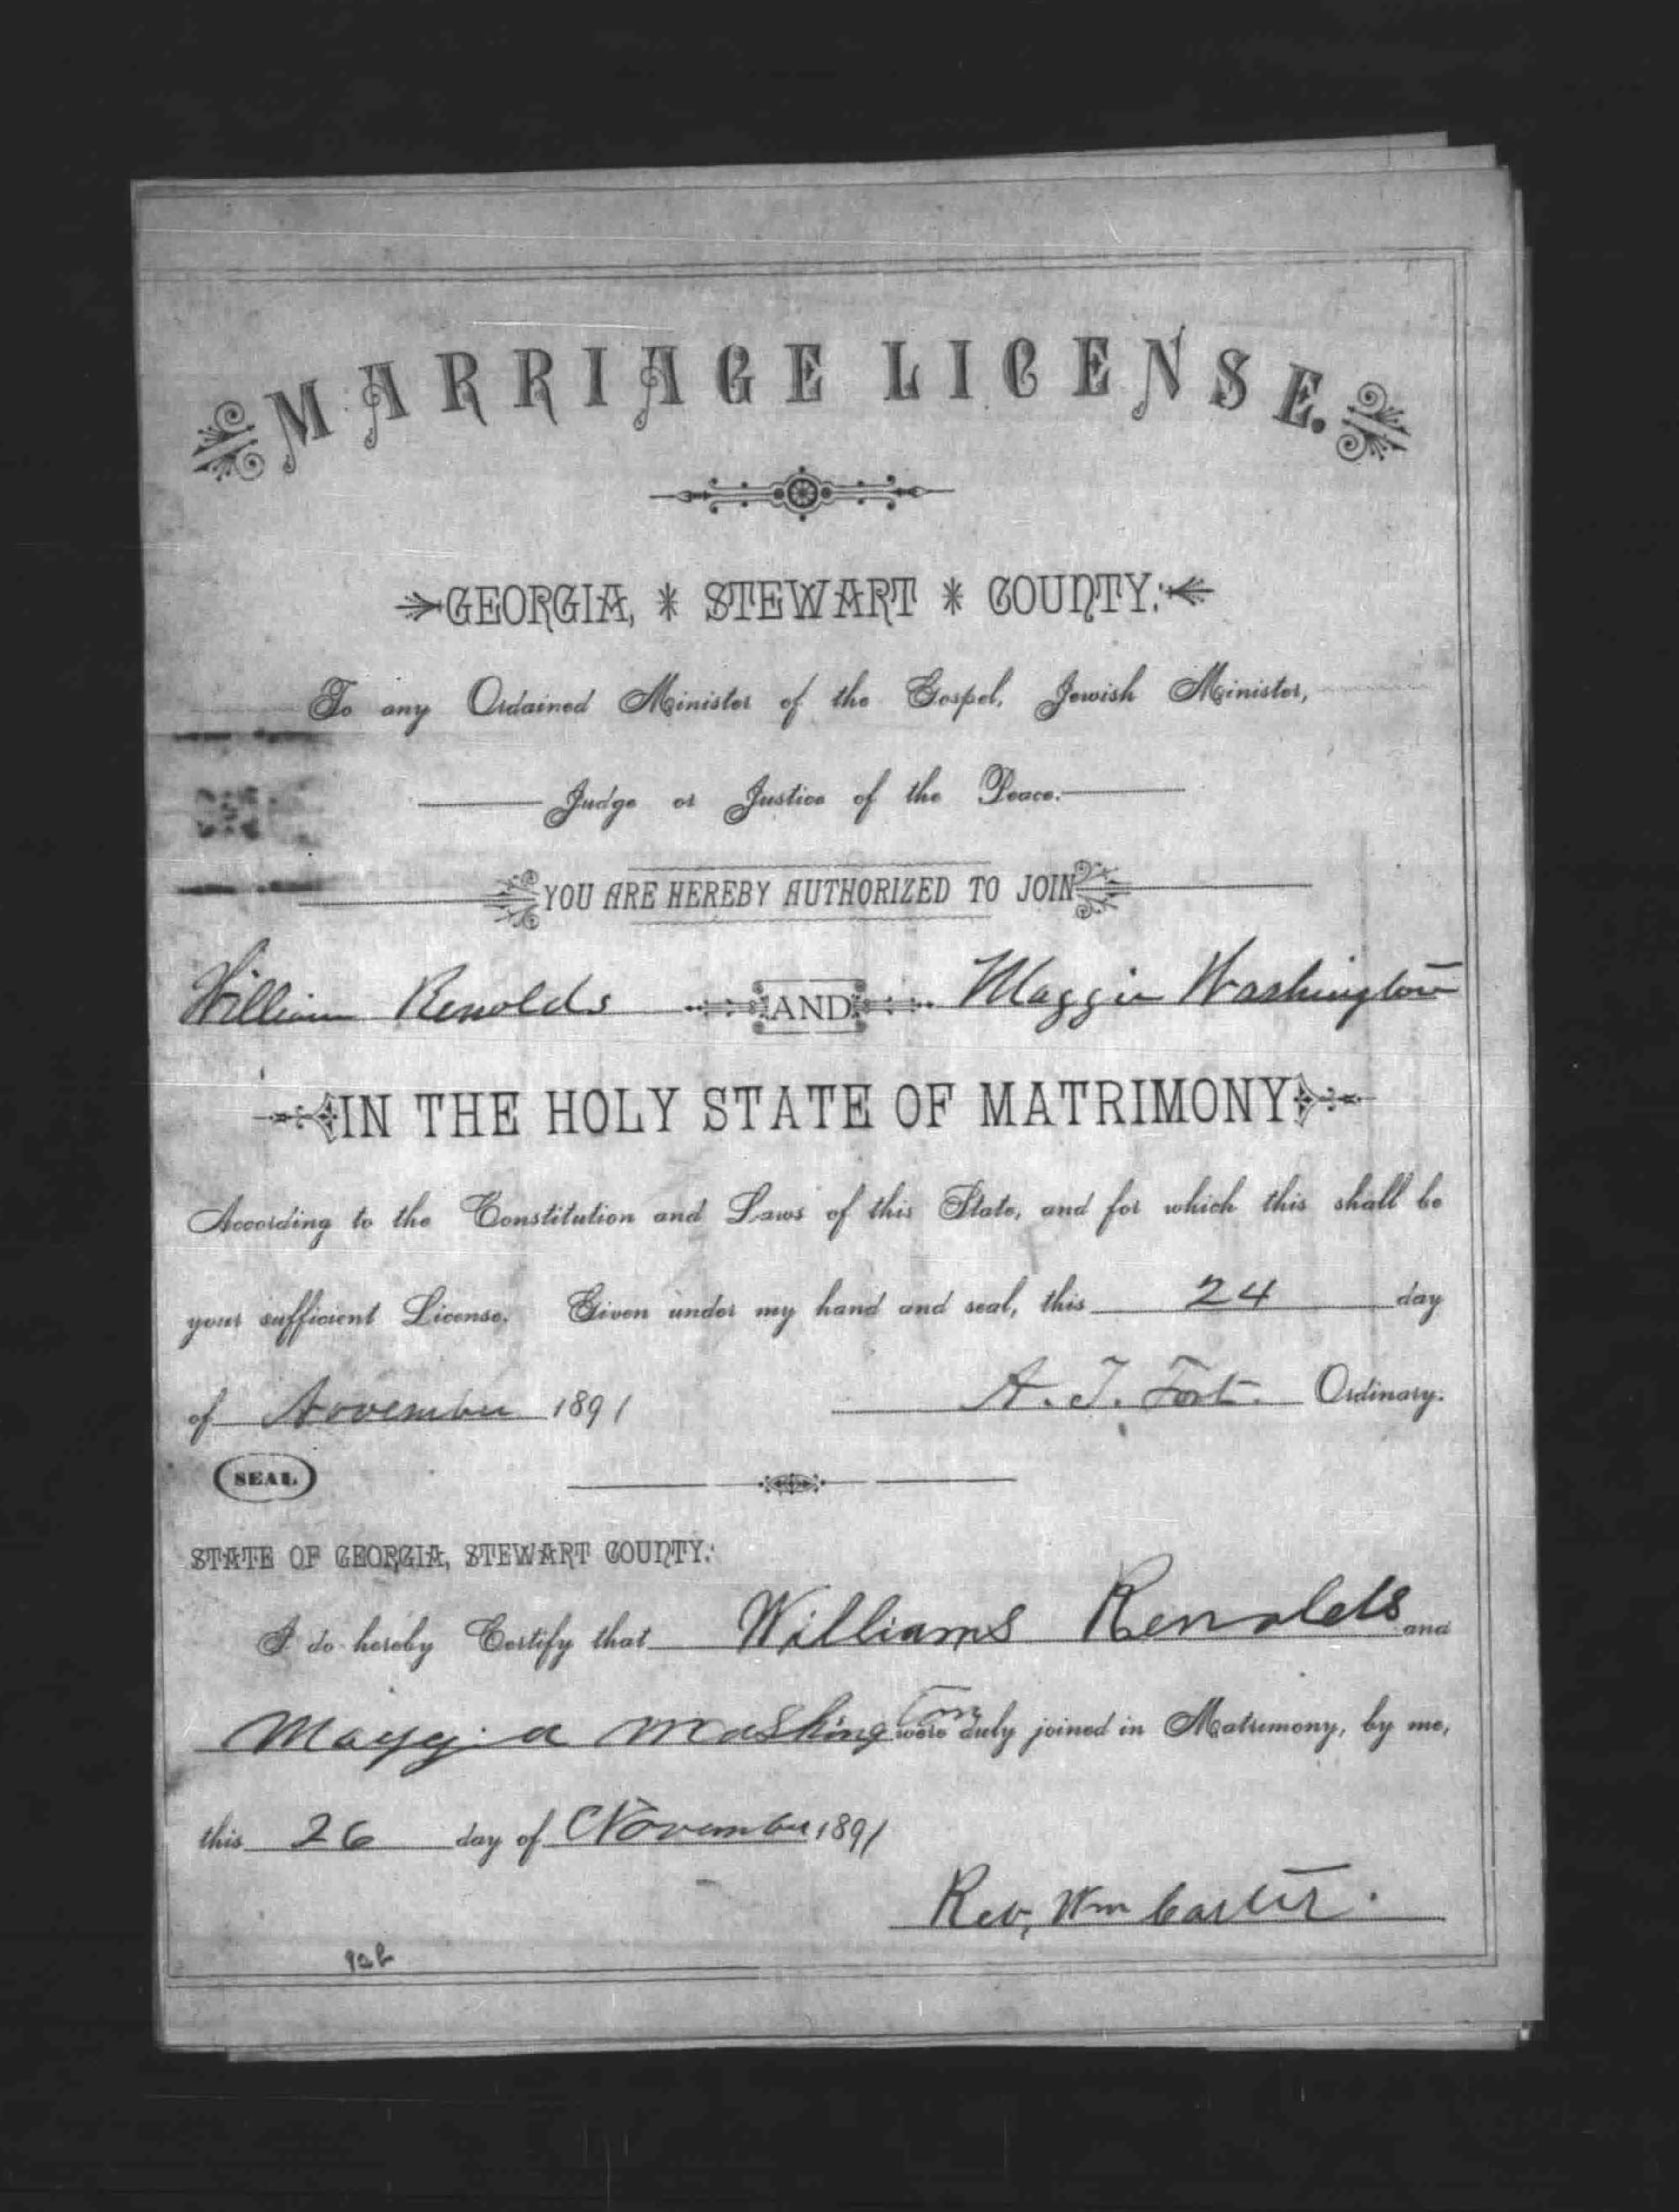 MARRIAGE LICENSE.
GEORGIA, * STEWART * COUNTY:
To any Ordained Minister of the Gospel, Jewish Minister,
Judge or Justice of the Peace.
YOU ARE HEREBY AUTHORIZED TO JOIN
William Renolds AND Maggie Washington
IN THE HOLY STATE OF MATRIMONY
According to the Constitution and Laws of this State, and for which this shall be
your sufficient License. Given under my hand and seal, this 24 day
of November 1891 A. T. Fort. Ordinary.
SEAL
STATE OF GEORGIA, STEWART COUNTY:
I do hereby Certify that Williams Renolds and
Maggia Mashington were duly joined in Matrimony, by me,
this 26 day of November 1891
Rev, Wm Carter.